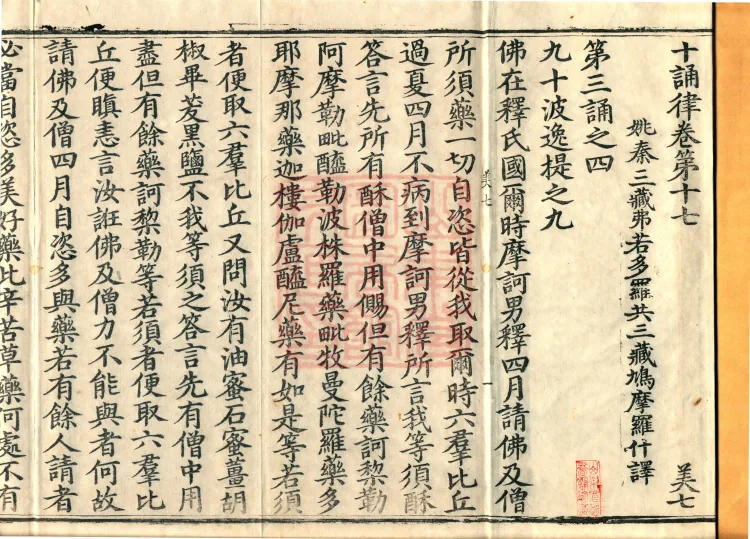 十誦律卷第十七
美七
姚秦三藏弗若多羅共三藏鳩摩羅什譯
第三誦之四
九十波逸提之九
佛在釋氏國爾時摩訶男釋四月請佛及僧
美七
一
所須藥一切自恣皆從我取爾時六羣比丘
過夏四月不病到摩訶男釋所言我等須酥
答言先所有酥僧中用賜但有餘藥訶棃勒
阿摩勒毗醯勒波株羅藥毗牧曼陀羅藥多
耶摩那藥迦樓伽盧醯尼藥有如是等若須
者便取六羣比丘又問汝有油蜜石蜜薑胡
椒畢茇黑鹽不我等須之答言先有僧中用
盡但有餘藥訶棃勒等若須者便取六羣比
丘便瞋恚言汝誑佛及僧力不能與者何故
請佛及僧四月自恣多與藥若有餘人請者
必當自恣多美好藥比辛苦草藥何處不有